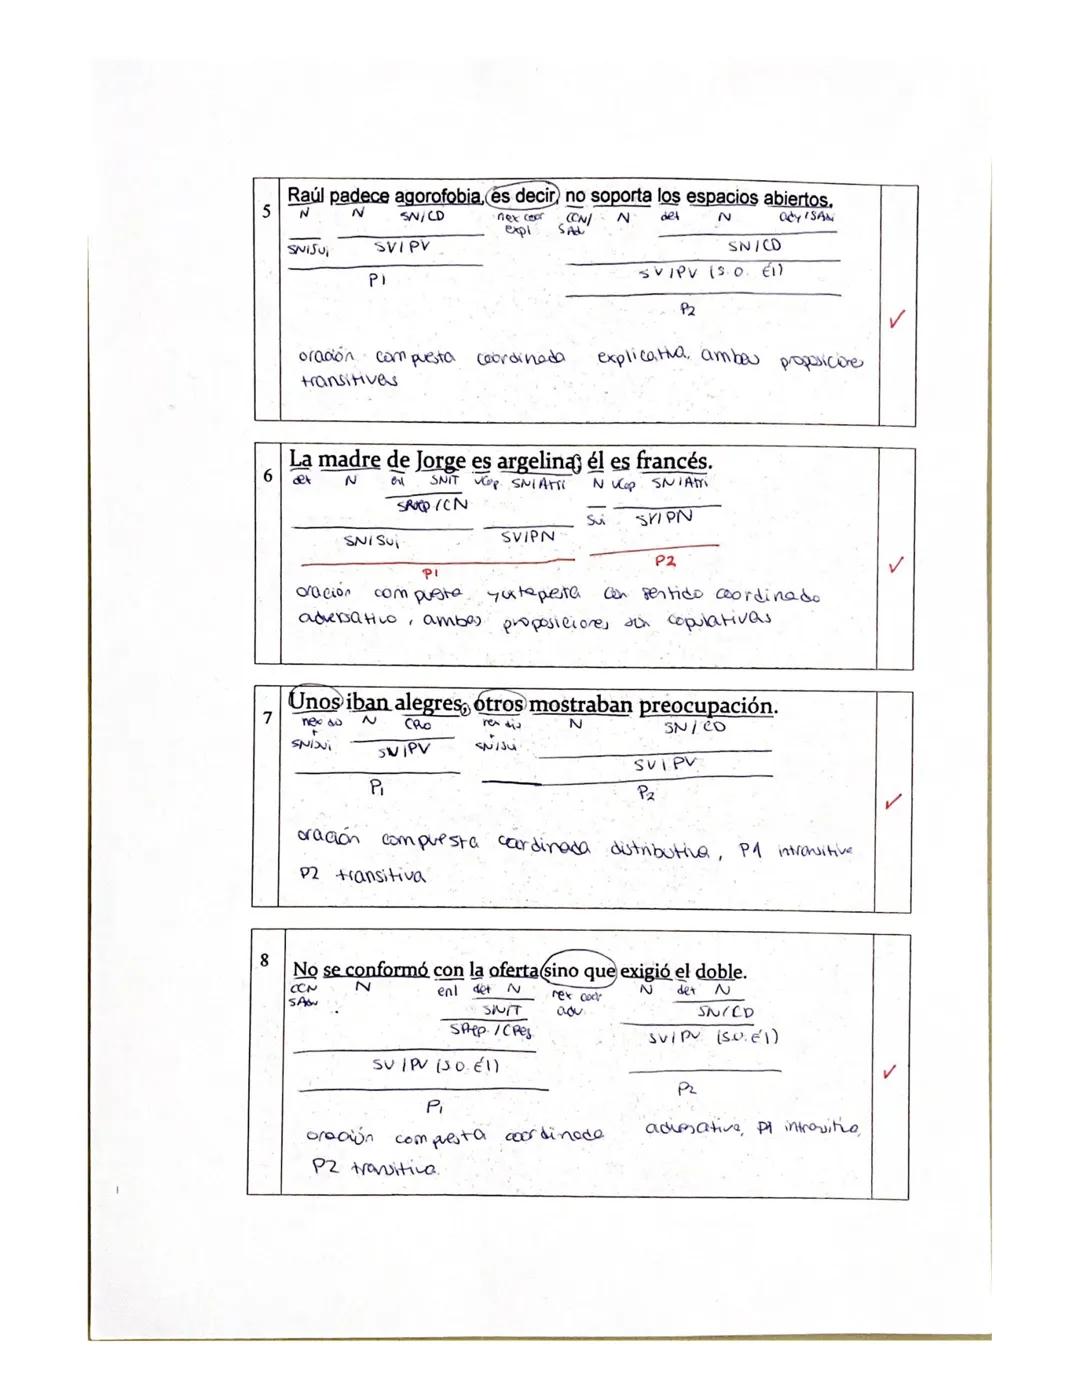 5
Raúl padece agorofobia, es decir, no soporta los espacios abiertos.
N N SN/CD nex coor CCN/ N det N ady/SAdj
expl SAdv
SN/Suj SV/PV SN/CD
P1 SV/PV (S.O. Él)
P2
oración compuesta coordinada explicativa, ambas proposiciones
transitivas
6
La madre de Jorge es argelina; él es francés.
det N enl SN/T vcop SN/Atri N vcop SN/Atri
SPrep/CN
Suj SV/PN
SN/Suj SV/PN
P1 P2
oración compuesta yuxtapuesta con sentido coordinado
adversativo, ambas proposiciones son copulativas
7
Unos iban alegres, otros mostraban preocupación.
nex dis N CPvo nex dis N SN/CD
+ +
SN/Suj SV/PV SN/Suj
SV/PV
P1 P2
oración compuesta coordinada distributiva, P1 intransitiva
P2 transitiva
8
No se conformó con la oferta sino que exigió el doble.
CCN N enl det N nex coor N det N
SAdv SN/T adv. SN/CD
SPrep/CReg SV/PV (S.O. Él)
SV/PV (S.O. Él)
P2
P1
oración compuesta coordinada adversativa, P1 intransitiva,
P2 transitiva.